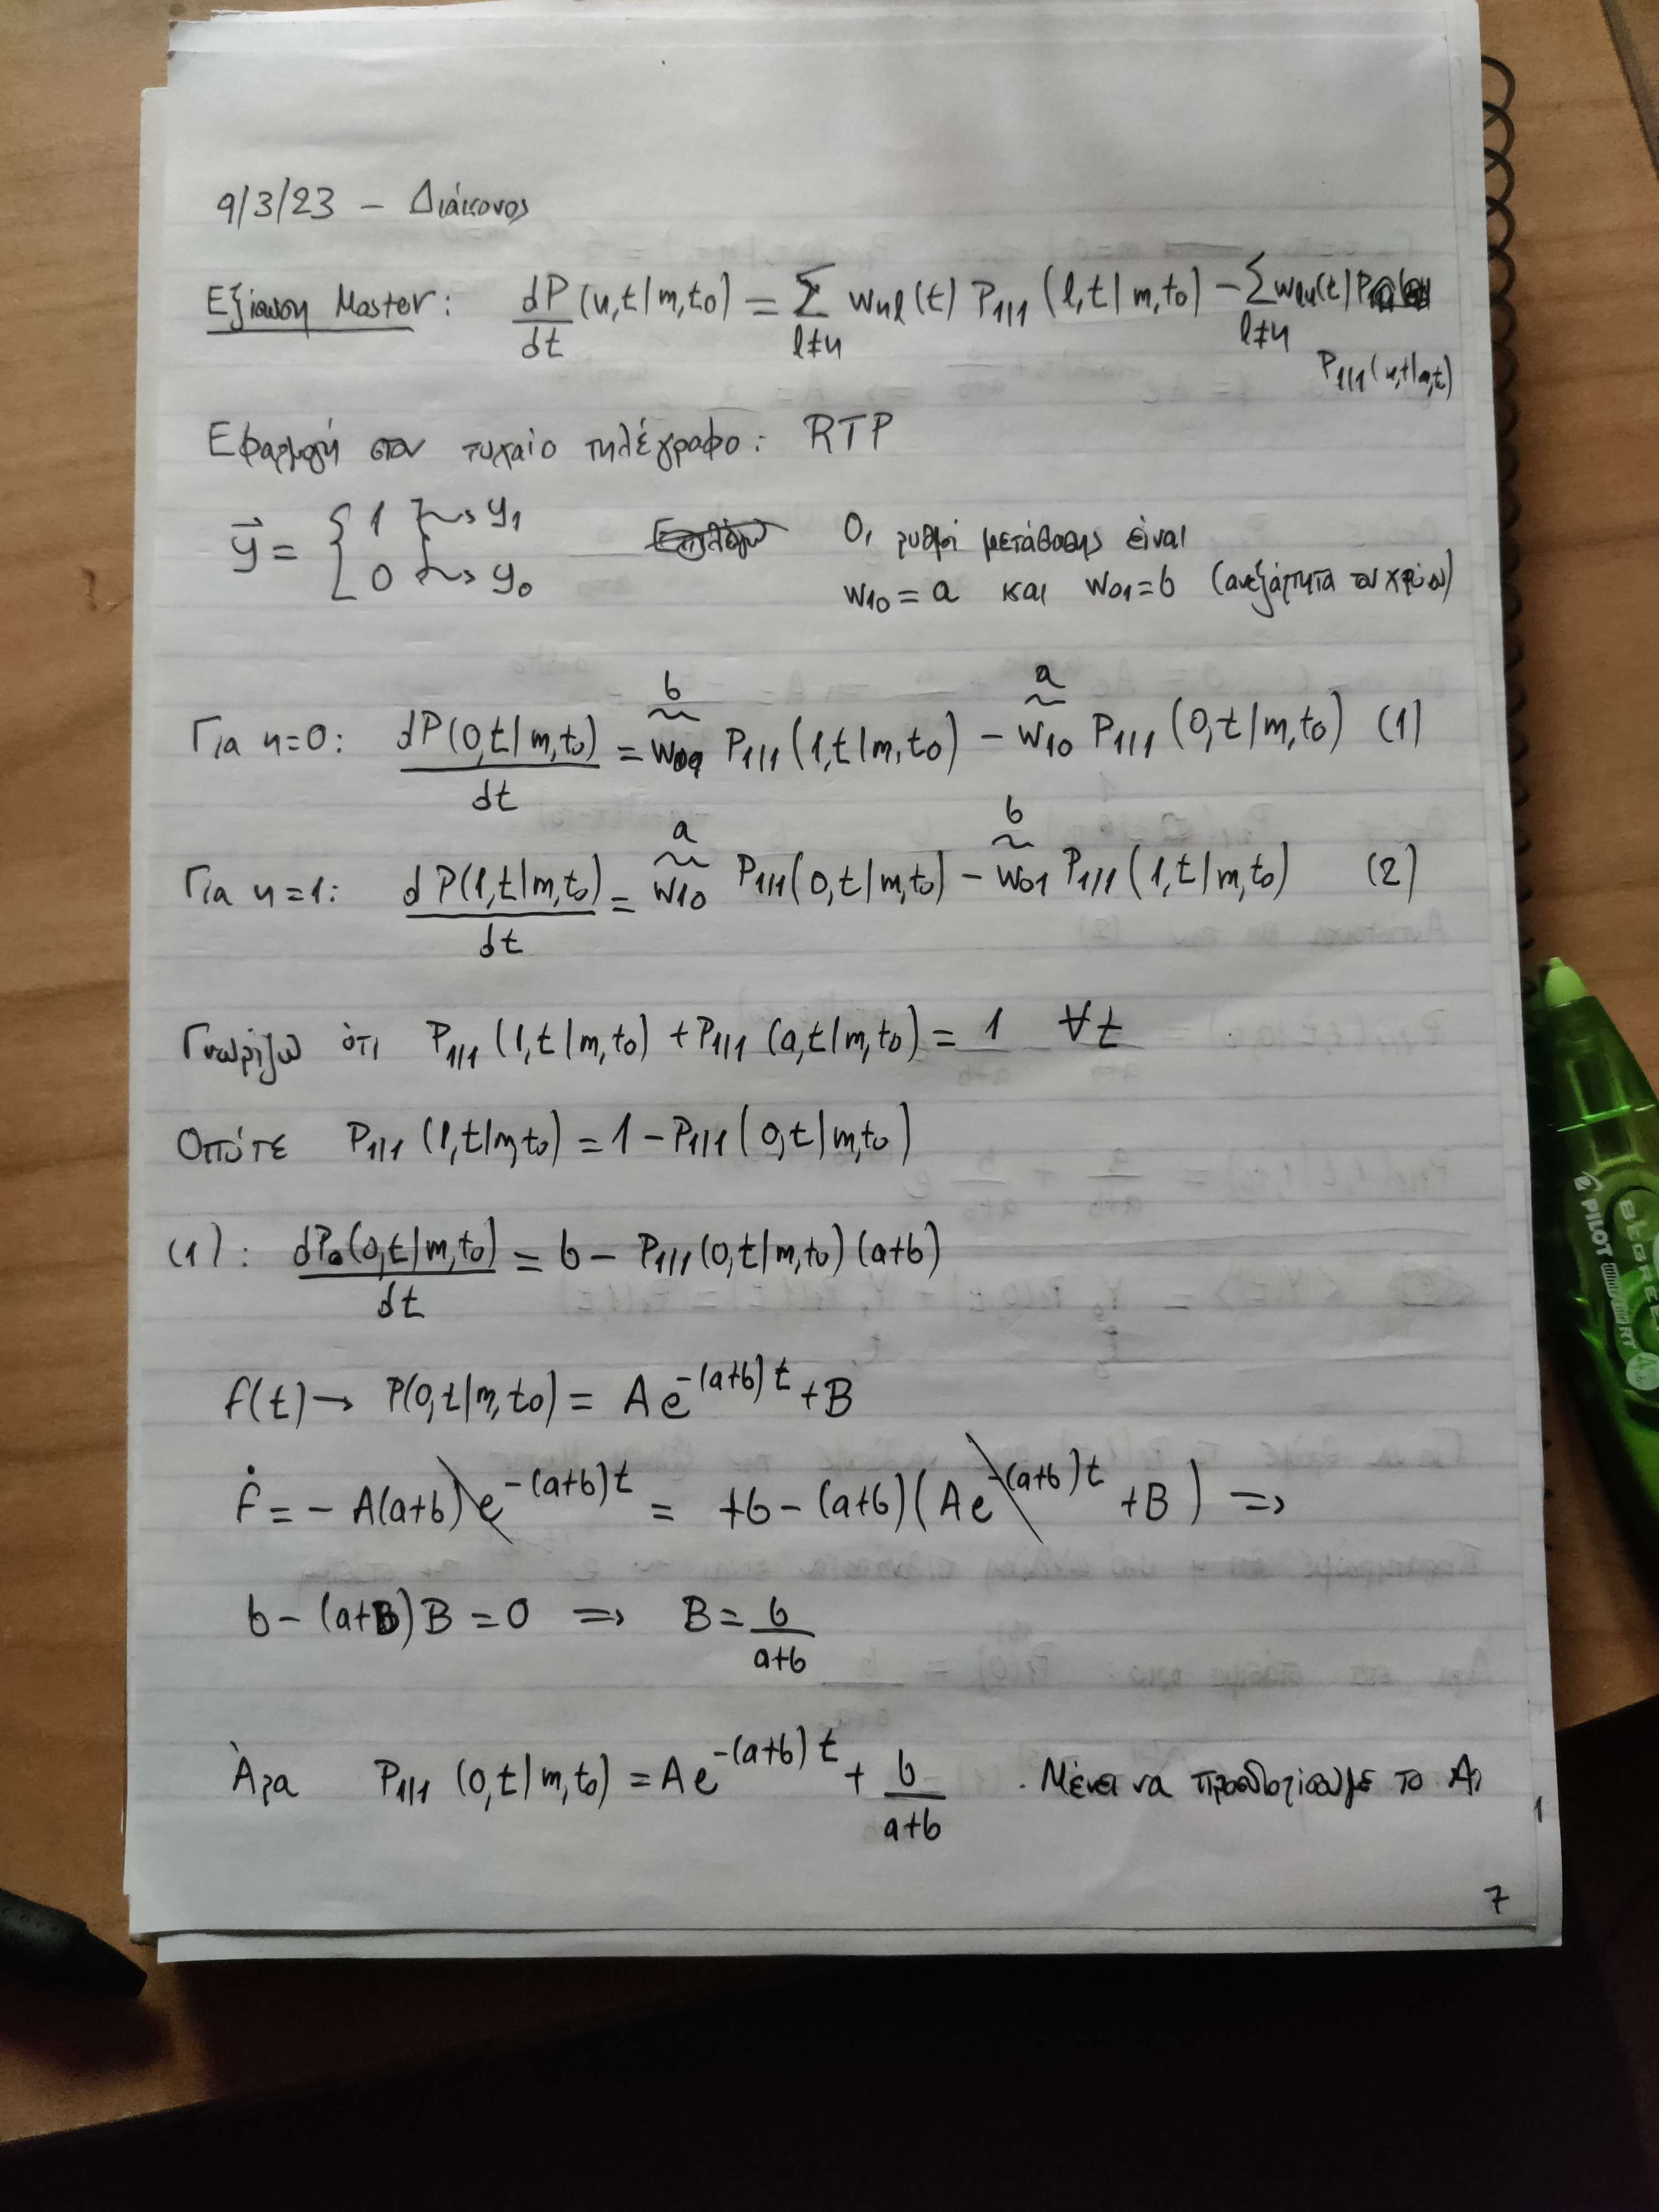 9/3/23 - Διάκονος
Εξίσωση Master: dP/dt (n,t|m,t₀) = Σ_{l≠n} w_{nl}(t) P_{1|1} (l,t|m,t₀) - Σ_{l≠n} w_{ln}(t)
P_{1|1}(n,t|m,t)
Εφαρμογή στον τυχαίο τηλέγραφο: RTP
y⃗ = { 1 } ⤳ y₁
0 } ⤳ y₀
Οι ρυθμοί μετάβασης είναι
w₁₀ = a και w₀₁ = b (ανεξάρτητα του χρόνου)
Για n=0: dP(0,t|m,t₀)/dt = w₀₁ (b) P_{1|1} (1,t|m,t₀) - w₁₀ (a) P_{1|1} (0,t|m,t₀) (1)
Για n=1: dP(1,t|m,t₀)/dt = w₁₀ (a) P_{1|1} (0,t|m,t₀) - w₀₁ (b) P_{1|1} (1,t|m,t₀) (2)
Γνωρίζω ότι P_{1|1} (1,t|m,t₀) + P_{1|1} (0,t|m,t₀) = 1 ∀t
Οπότε P_{1|1} (1,t|m,t₀) = 1 - P_{1|1} (0,t|m,t₀)
(1): dP(0,t|m,t₀)/dt = b - P_{1|1}(0,t|m,t₀)(a+b)
f(t) → P(0,t|m,t₀) = A e^{-(a+b)t} + B
ḟ = - A(a+b) e^{-(a+b)t} = +b - (a+b)(A e^{-(a+b)t} + B) ⇒
b - (a+b) B = 0 ⇒ B = b/(a+b)
Άρα P_{1|1} (0,t|m,t₀) = A e^{-(a+b)t} + b/(a+b) . Μένει να προσδιορίσουμε το A,
1
7
PILOT
BEGREEN